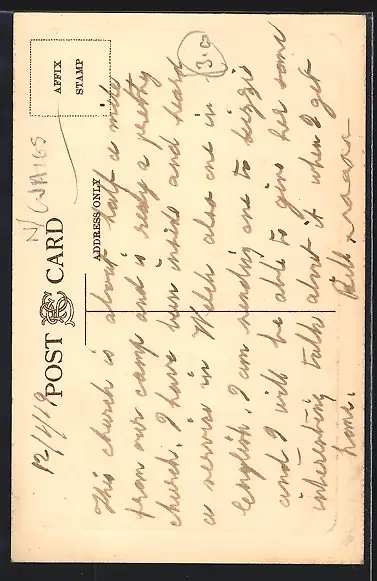 AFFIX
STAMP
3.0
N/WALES
POST CARD
ADDRESS ONLY
12/4/19
This church is about half a mile
from our camp and is really a pretty
church. I have been inside and heard
a service in Welch also one in
English. I am sending one to Lizzie
and I will be able to give her some
interesting talk about it when I get
home.